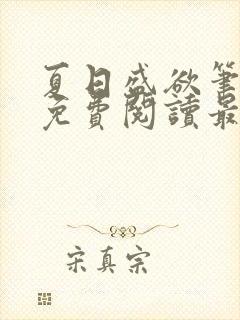 夏日盛欲筆
免費閱讀最
宋真宗